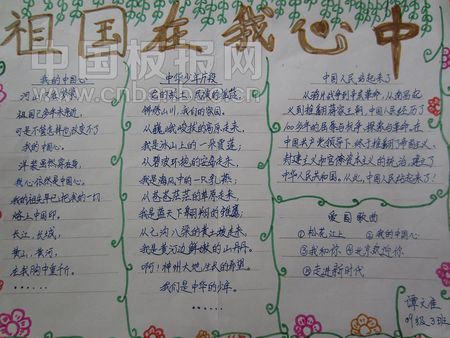 祖国在我心中
中国板报网
我的中国心
河山只在我梦萦
祖国已多年未亲近
可是不管怎样也改变不了
我的中国心。
洋装虽然穿在身
我心依然是中国心。
我的祖先早已把我的一切
烙上中国印。
长江,长城,
黄山,黄河,
在我胸中重千斤。
……
中华少年片段
锦绣山川,我们的家园。
从巍峨峻拔的高原走来,
我是冰山上的一朵雪莲;
从碧波环抱的宝岛走来,
我是海风中的一只乳燕;
从苍苍茫茫的草原走来,
我是蓝天下翱翔的雏鹰;
从七沟八梁的黄土坡走来,
我是黄河边鲜嫩的山丹丹。
啊!神州大地生长的希望。
我们是中华的少年。
……
中国人民站起来了
从鸦片战争到辛亥革命,从南昌起
义到推翻蒋家王朝,中国人民经历了
100多年的屈辱与抗争,探索与革命,在
中国共产党领导下,终于推翻了帝国主义、
封建主义和官僚资本主义的统治,建立了
中华人民共和国。从此,中国人民站起来了!
爱国歌曲
①松花江上 ②我的中国心
③我和你 ④北京欢迎你
⑤走进新时代
谭文准
09级.3班